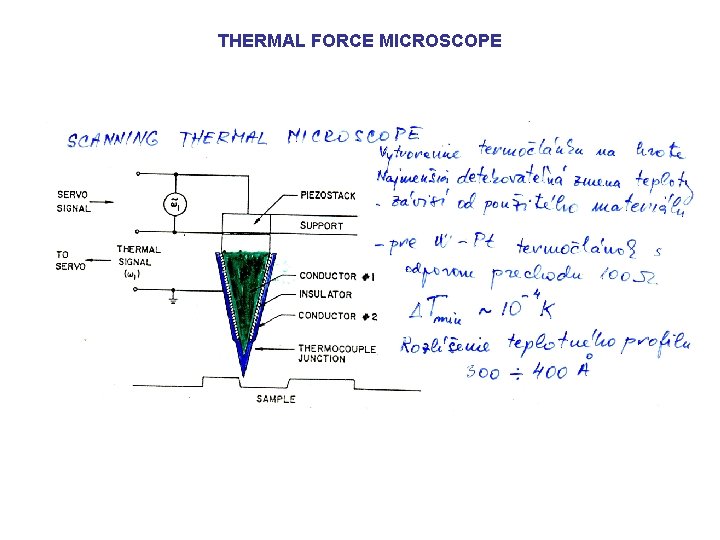 THERMAL FORCE MICROSCOPE
SCANNING THERMAL MICROSCOPE
Vytvorenie termočlánku na hrote
Najmenšia detekovateľná zmena teploty
- závisí od použitého materiálu
- pre W - Pt termočlánok s
odporom prechodu 100 Ω.
ΔTmin ~ 10⁻⁴ K
Rozlíšenie teplotného profilu
300 ÷ 400 Å
SERVO
SIGNAL
ω̃1
PIEZOSTACK
SUPPORT
TO
SERVO
THERMAL
SIGNAL
(ω1)
CONDUCTOR #1
INSULATOR
CONDUCTOR #2
THERMOCOUPLE
JUNCTION
SAMPLE